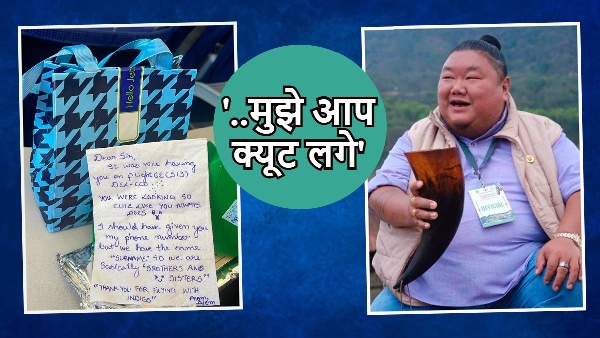 Hello
'..मुझे आप
क्यूट लगे'
Dear Sir,
It was nice having
you on 6E(513)
YOU WERE LOOKING SO
CUTE LIKE YOU ALWAYS
DOES
I should have given you
my phone number
but we have the same
"SURNAME" SO we are
Basically "BROTHERS AND
SISTERS"
"THANK YOU FOR FLYING WITH
INDIGO"
OFFICIAL